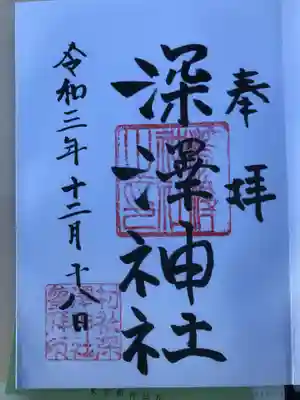 奉拝
深澤神社
令和三年十二月十八日